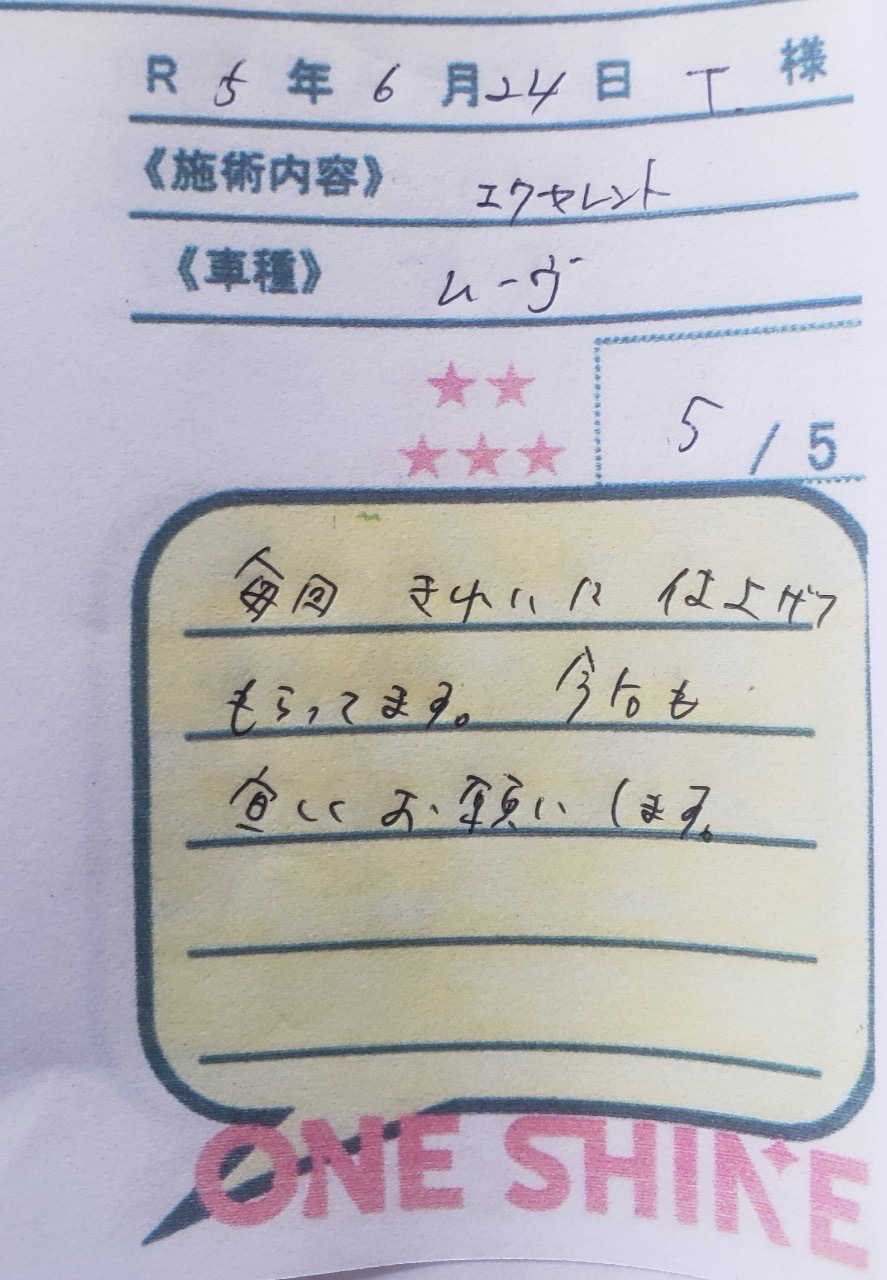 R 5 年 6 月 24 日 T. 様
《施術内容》 エクセレント
《車種》 ムーヴ
★★
★★★
5 / 5
毎回 きれいに 仕上げて
もらってます。 今后も
宜しく お願いします。
ONE SHINE